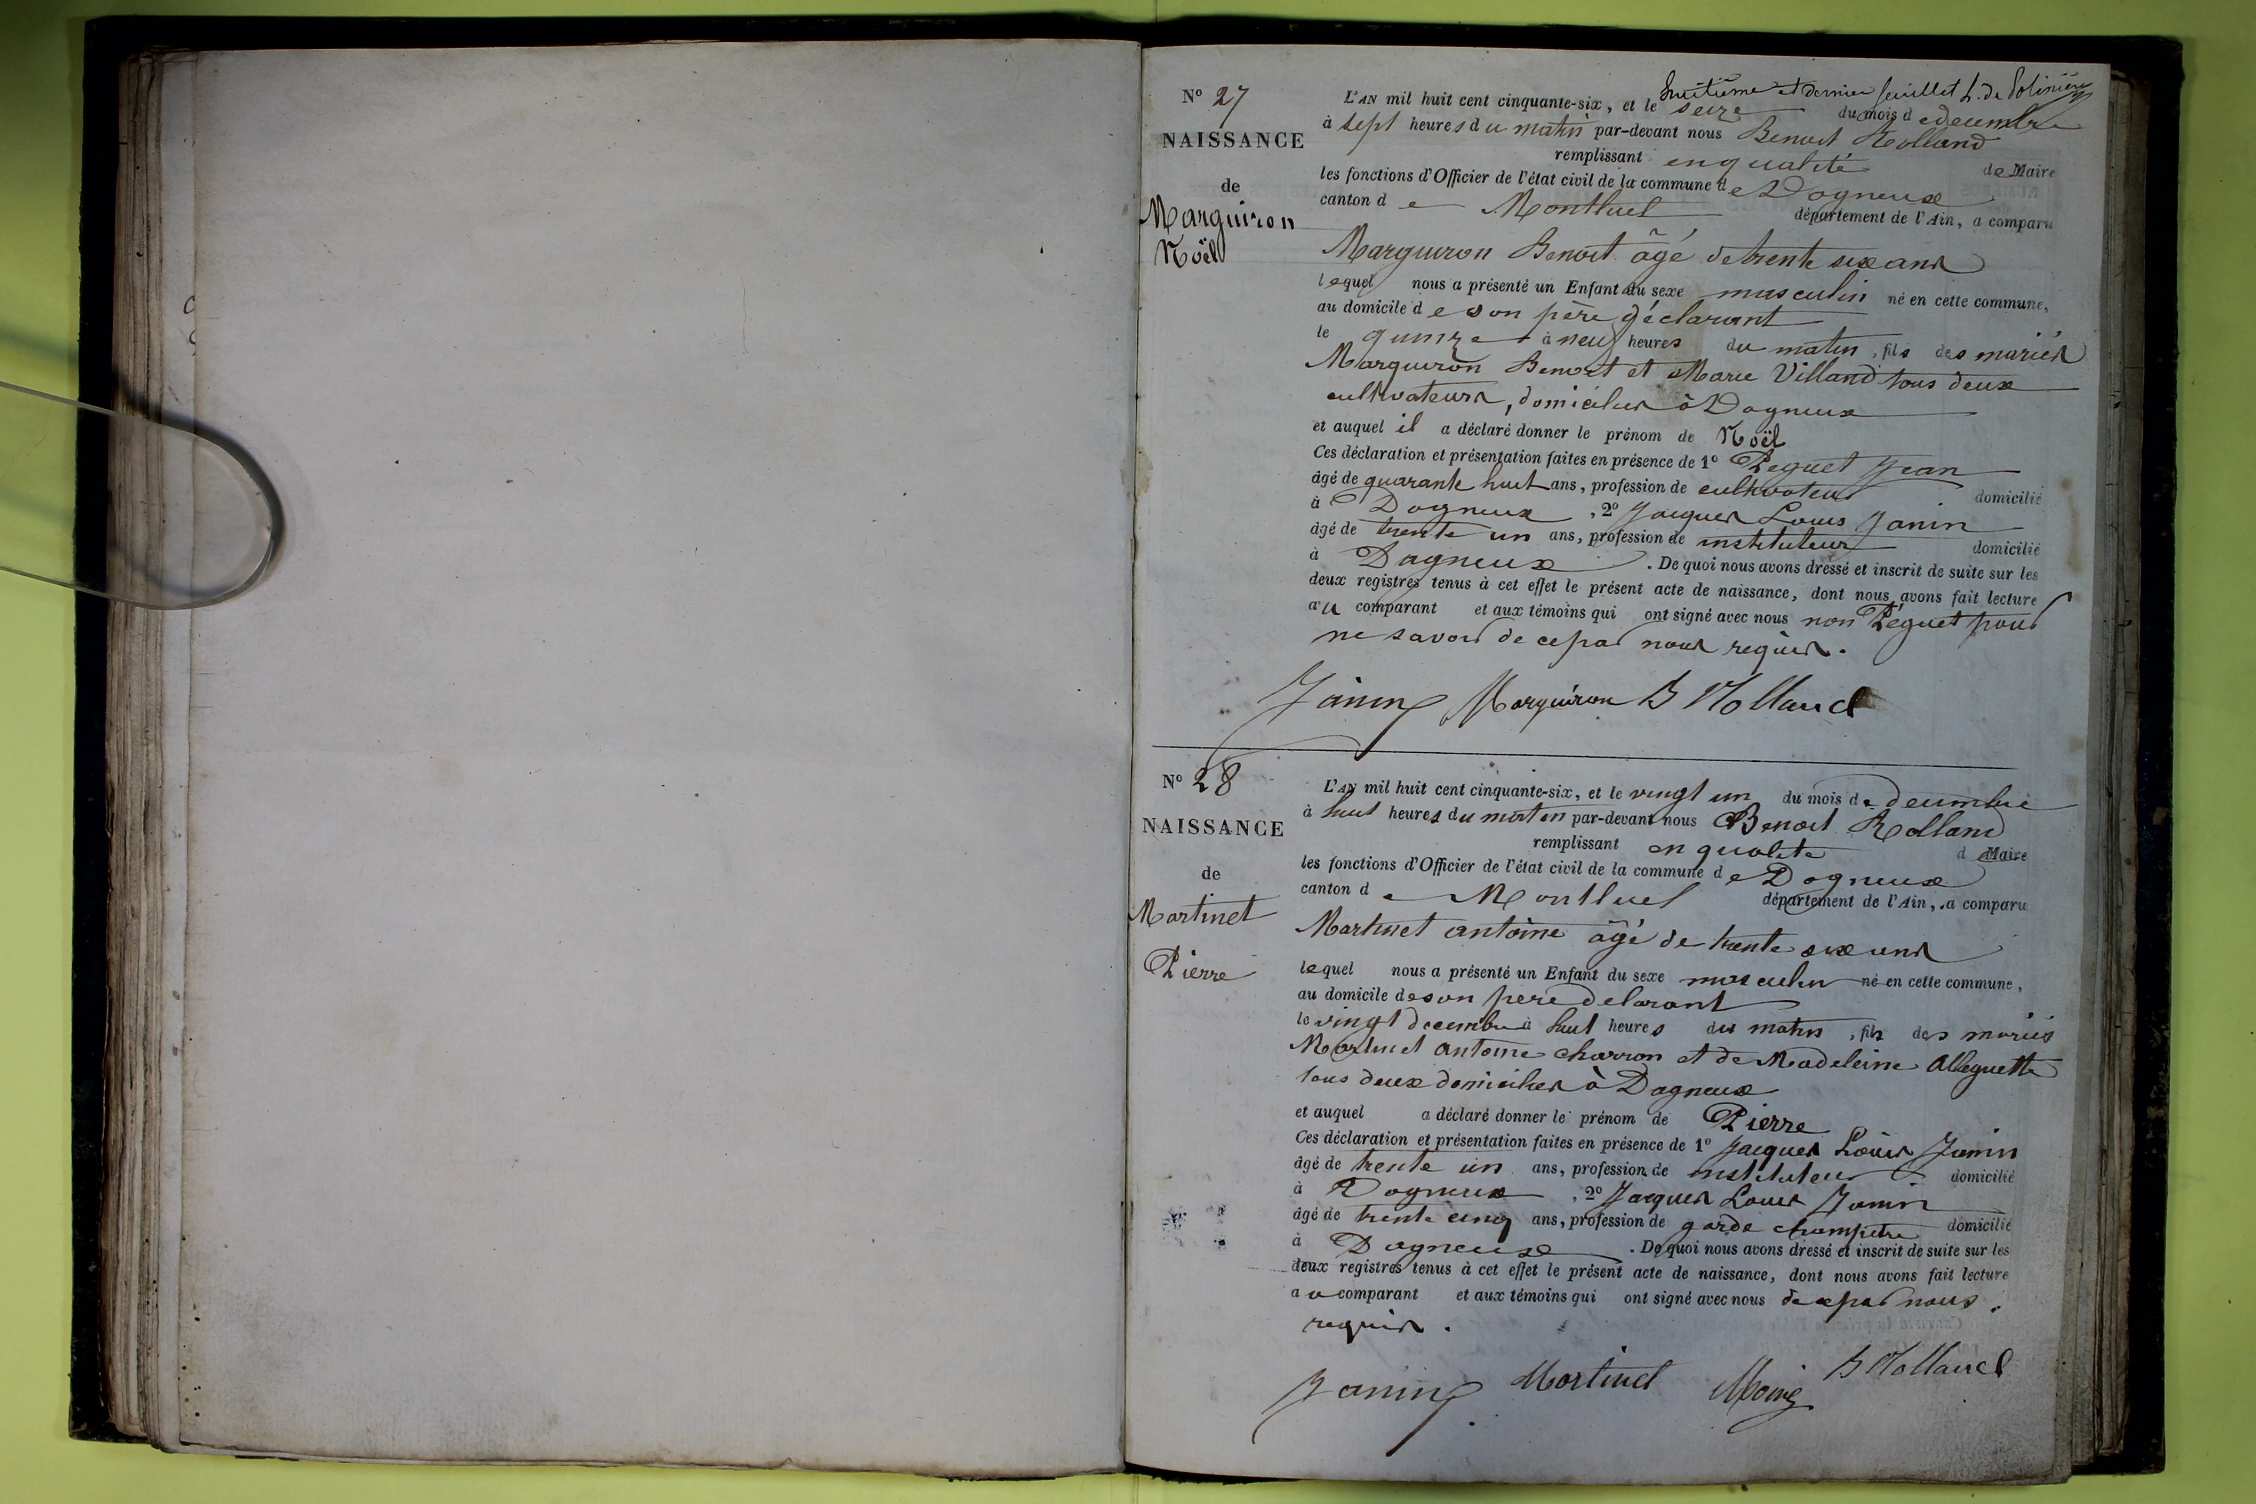 huitième et dernier feuillet
N° 27
NAISSANCE
de
Marguiron
Noël
L'AN mil huit cent cinquante-six, et le seize du mois de decembre
à sept heures du matin par-devant nous Benoit Rolland
remplissant en qualité de Maire
les fonctions d'Officier de l'état civil de la commune de Dagneux
canton de Montluel département de l'Ain, a comparu
Marguiron Benoit âgé de trente six ans
lequel nous a présenté un Enfant du sexe masculin né en cette commune,
au domicile de son père déclarant
le quinze à neuf heures du matin, fils des mariés
Marguiron Benoit et Marie Villand tous deux
cultivateurs, domiciliés à Dagneux
et auquel il a déclaré donner le prénom de Noël
Ces déclaration et présentation faites en présence de 1° Péguet Jean
âgé de quarante huit ans, profession de cultivateur domicilié
à Dagneux, 2° Jacques Louis Janin
âgé de trente un ans, profession de instituteur domicilié
à Dagneux. De quoi nous avons dressé et inscrit de suite sur les
deux registres tenus à cet effet le présent acte de naissance, dont nous avons fait lecture
au comparant et aux témoins qui ont signé avec nous non Péguet pour
ne savoir de ce par nous requis.
Janin Marguiron B Rolland
N° 28
NAISSANCE
de
Martinet
Pierre
L'AN mil huit cent cinquante-six, et le vingt un du mois de decembre
à huit heures du matin par-devant nous Benoit Rolland
remplissant en qualité de Maire
les fonctions d'Officier de l'état civil de la commune de Dagneux
canton de Montluel département de l'Ain, a comparu
Martinet antoine âgé de trente six ans
lequel nous a présenté un Enfant du sexe masculin né en cette commune,
au domicile de son père delarant
le vingt decembre à huit heures du matin, fils des mariés
Martinet antoine charron et de Madeleine Alleguette
tous deux domiciliés à Dagneux
et auquel a déclaré donner le prénom de Pierre
Ces déclaration et présentation faites en présence de 1° Jacques Louis Janin
âgé de trente un ans, profession de instituteur domicilié
à Dagneux, 2° Jacques Louis Janin
âgé de trente cinq ans, profession de garde champêtre domicilié
à Dagneux. De quoi nous avons dressé et inscrit de suite sur les
deux registres tenus à cet effet le présent acte de naissance, dont nous avons fait lecture
au comparant et aux témoins qui ont signé avec nous de ce par nous
requis.
Janin Martinet B Rolland